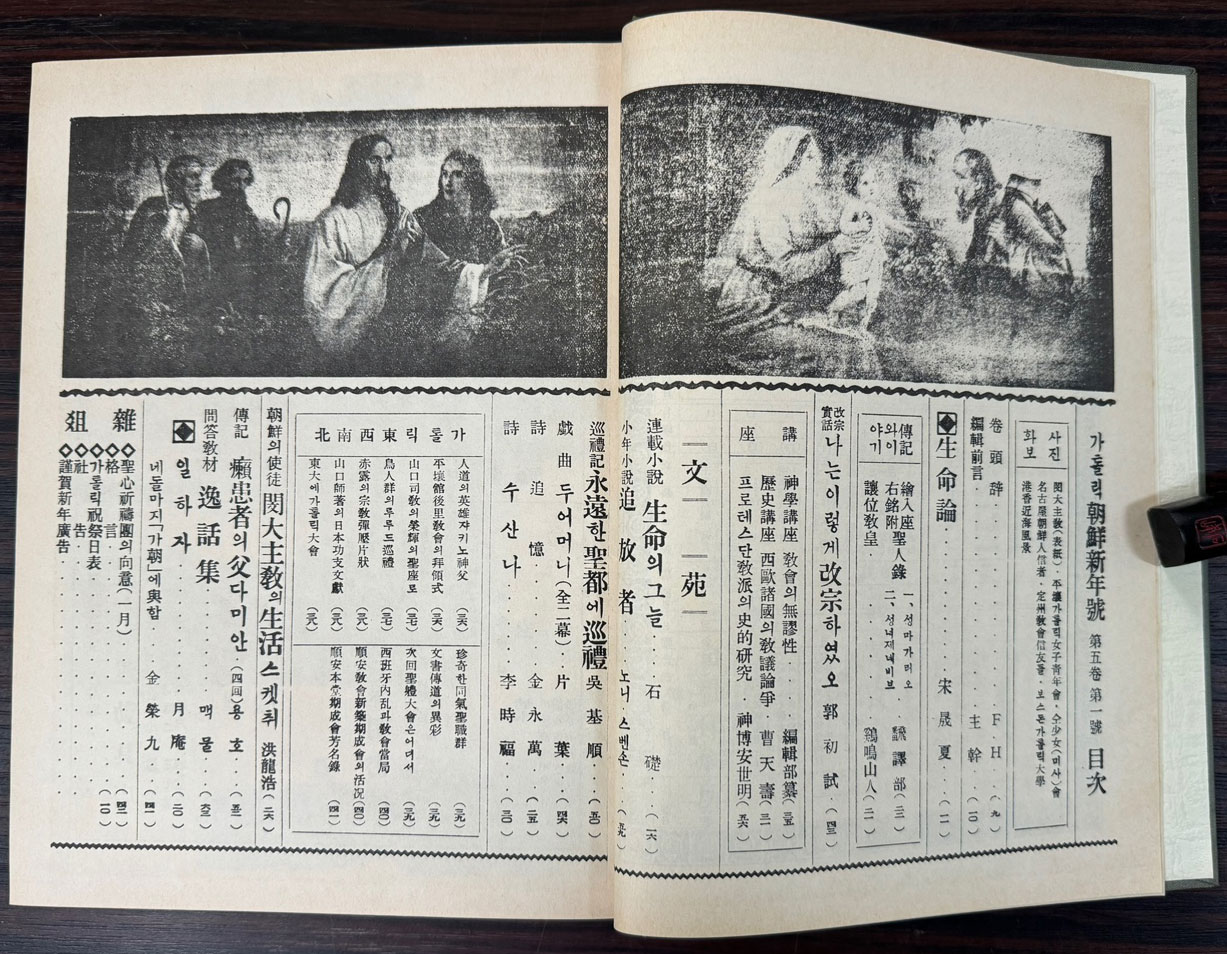 가톨릭 朝鮮新年號 第五卷 第一號 目次
사진화보
閔大主敎(表紙)・平壤가톨릭女子靑年會・仝少女(미사)會
名古屋朝鮮人信者・定州敎會信友들・보스톤가톨릭大學
港香近海風景
卷頭辭・・・F H・・(九)
編輯前言・・・主幹・・(一〇)
生命論・・・宋晟夏・・(一一)
傳記와이야기
繪入座聖人錄 一、성마가리오 二、성녀제네비브・・飜譯部(三一)
右銘附
讓位敎皇・・・鷄鳴山人(二一)
改宗實話 나는이렇게改宗하였오 郭初試・・(四三)
講座
神學講座 敎會의無謬性・・編輯部纂(三五)
歷史講座 西歐諸國의敎議論爭・曹天壽(三一)
프로테스단敎派의史的硏究・神博安世明(五六)
文苑
連載小說 生命의그늘・・・石礎・・(一六)
少年小說 追放者・노니스벤손・(五九)
巡禮記 永遠한聖都에巡禮 吳基順・・(五〇)
戱曲 두어머니(全二幕)・・片葉・・(四六)
詩 追憶・・・金永萬・・(三五)
詩 수산나・・・李時福・・(三〇)
가톨릭東西南北
人道의英雄쟈키노神父 (三六)
平壤館後里敎會의拜領式 (三六)
山口司敎의榮輝의聖座로 (三七)
鳥人群의루우드巡禮 (三七)
赤露의宗敎彈壓片狀 (三八)
山口師著의日本功支文獻 (三八)
東大에가톨릭大會 (三八)
珍奇한同氣聖職群 (三九)
文書傳道의異彩 (三九)
次回聖體大會은어대서 (三九)
西班牙內乱과敎會當局 (四〇)
順安敎會新築期成會의活况 (四〇)
順安本堂期成會芳名錄 (四一)
朝鮮의使徒 閔大主敎의生活스켓취 洪龍浩(二六)
傳記 癩患者의父다미안・(四回)용호・・(五二)
問答敎材 逸話集・・・맥물・・(六三)
일하자・・・月庵・・(二〇)
네돌마지「가朝」에與함 金榮九・・(四一)
雜俎
◇聖心祈禱團의向意(一月)・・・(四二)
◇格言・・・(一〇)
◇가톨릭祝祭日表
◇社告
◇謹賀新年廣告